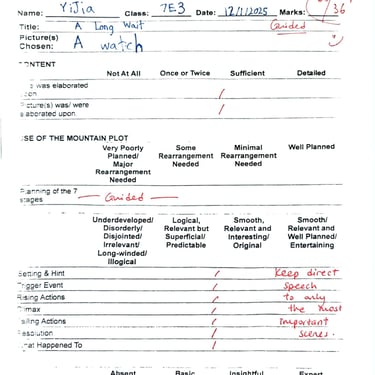 Name: YiJia Class: 7E3 Date: 12/1/2025 Marks: /36
Title: A Long Wait Guided
Picture(s) Chosen: A watch
ONTENT
Not At All Once or Twice Sufficient Detailed
was elaborated upon /
icture(s) was/were elaborated upon /
SE OF THE MOUNTAIN PLOT
Very Poorly Planned/ Major Rearrangement Needed
Some Rearrangement Needed
Minimal Rearrangement Needed
Well Planned
anning of the 7 stages — Guided —
Underdeveloped/ Disorderly/ Disjointed/ Irrelevant/ Long-winded/ Illogical
Logical, Relevant but Superficial/ Predictable
Smooth, Relevant and Interesting/ Original
Smooth/ Relevant and Well Planned/ Entertaining
Setting & Hint / Keep direct
rigger Event / speech
Rising Actions / to only
limax / the most
alling Actions / important
esolution / scenes.
hat Happened To /
Absent Basic Insightful Expert